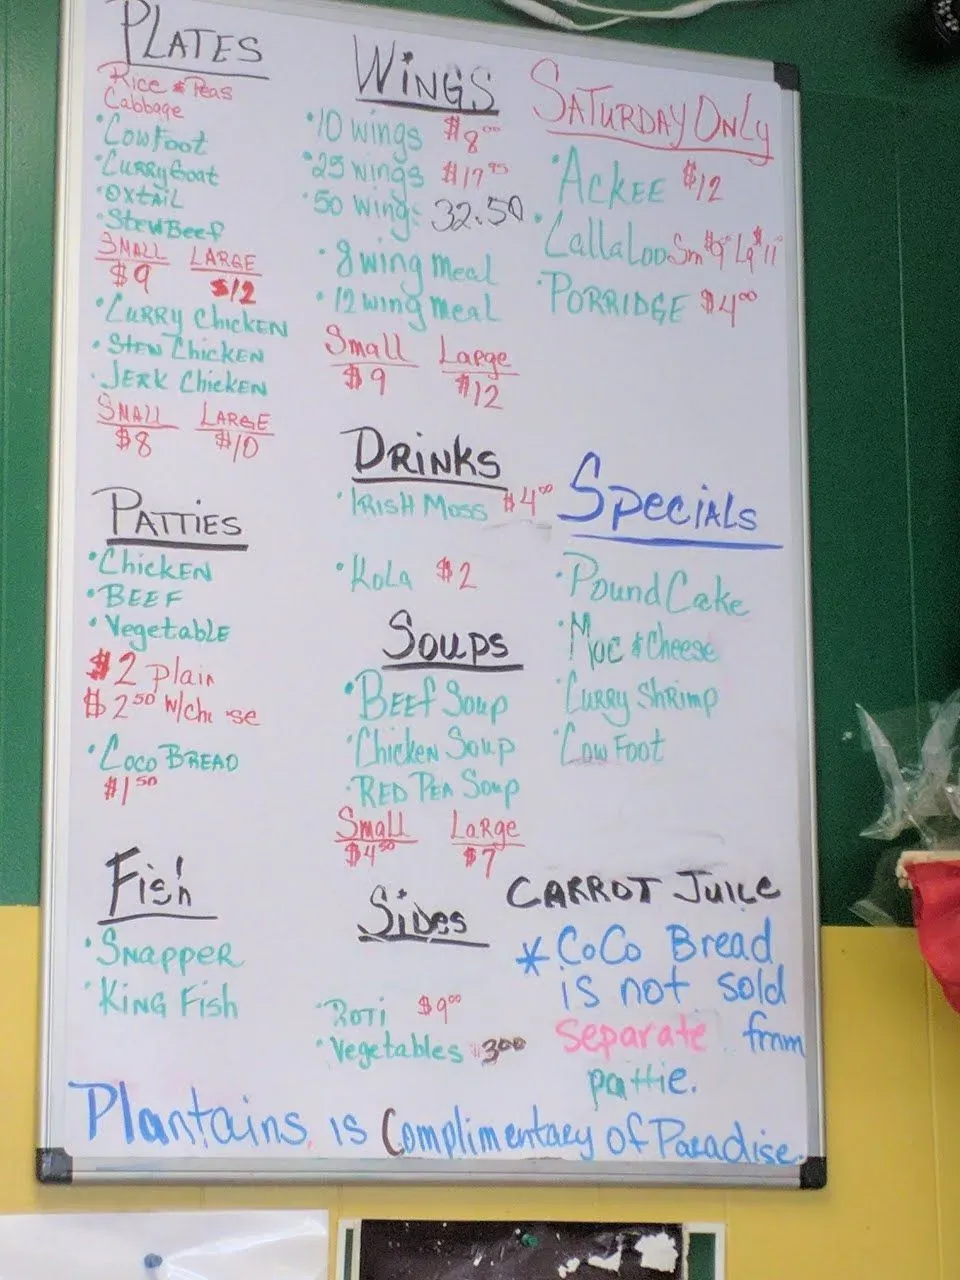 PLATES
Rice & Peas
Cabbage
• Cow Foot
• Curry Goat
• Oxtail
• Stew Beef
Small Large
$9 $12
• Curry Chicken
• Stew Chicken
• Jerk Chicken
Small Large
$8 $10
PATTIES
• Chicken
• Beef
• Vegetable
$2 plain
$2.50 w/che se
• Coco Bread
$1.50
Fish
• Snapper
• King Fish
WINGS
• 10 wings $8.00
• 25 wings $17.95
• 50 wings 32.50
• 8 wing meal
• 12 wing meal
Small Large
$9 $12
DRINKS
• Irish Moss $4.00
• Kola $2
Soups
• Beef Soup
• Chicken Soup
• Red Pea Soup
Small Large
$4.50 $7
Sides
• Roti $9.00
• Vegetables $3.00
SATURDAY ONLY
• Ackee $12
• Callaloo Sm $9 Lg $11
• Porridge $4.00
Specials
• Pound Cake
• Mac & Cheese
• Curry Shrimp
• Cow Foot
CARROT JUICE
* CoCo Bread
is not sold
separate from
pattie.
Plantains is Complimentary of Paradise.